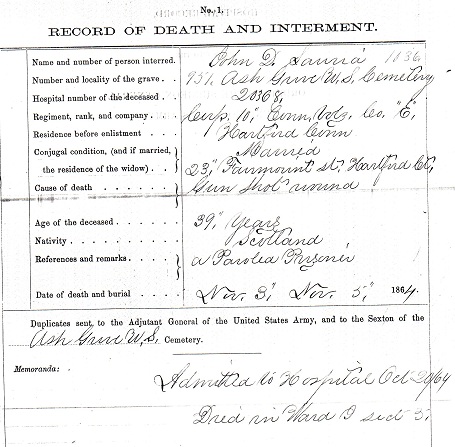 No. 1.
RECORD OF DEATH AND INTERMENT.
Name and number of person interred. John D. 1036.
Number and locality of the grave . . 951, Ash Grive W. S. Cemetery
Hospital number of the deceased . . 20368,
Regiment, rank, and company . . . . Corp. 10," Conn, Vols, Co. "E",
Residence before enlistment . . . Hartford Conn
Conjugal condition, (and if married, Married
the residence of the widow) . . . 23," Fairmount st, Hartford Ct,
Cause of death . . . . . . . . Gun Shot wound
Age of the deceased . . . . . . . 39," Years
Nativity . . . . . . . . . . Scotland
References and remarks . . . . . a Paroled Prisoner
Date of death and burial . . . . . Nov. 3," Nov. 5," 1864.
Duplicates sent to the Adjutant General of the United States Army, and to the Sexton of the
Ash Grive W. S, Cemetery.
Memoranda:
Admitted to Hospital Oct 29/64
Died in Ward D sect 5,